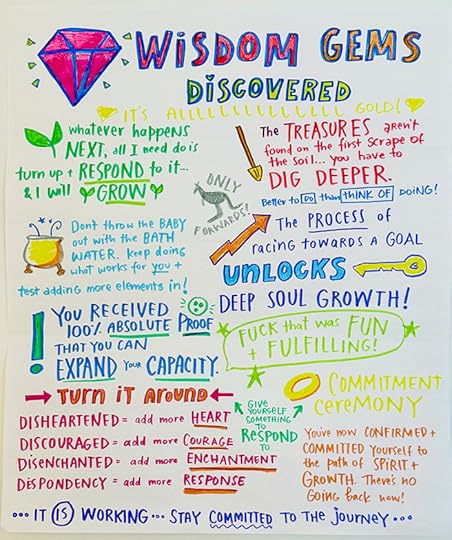 WISDOM GEMS
DISCOVERED
IT'S ALLLLLLLLLLLLLL GOLD!
whatever happens
NEXT, all I need do is
turn up + RESPOND to it...
& I will GROW
The TREASURES aren't
found on the first scrape of
the soil... you have to
DIG DEEPER.
Better to DO than THINK OF DOING!
ONLY
FORWARDS!
The PROCESS of
racing towards a GOAL
UNLOCKS
DEEP SOUL GROWTH!
Don't throw the BABY
out with the BATH
WATER. Keep doing
what works for you +
test adding more elements in!
YOU RECEIVED
100% ABSOLUTE PROOF
THAT YOU CAN
EXPAND YOUR CAPACITY.
FUCK that was FUN
+ FULFILLING!
TURN IT AROUND
DISHEARTENED = add more HEART
DISCOURAGED = add more COURAGE
DISENCHANTED = add more ENCHANTMENT
DISPONDENCY = add more RESPONSE
GIVE
YOURSELF
SOMETHING
TO
RESPOND
TO
COMMITMENT
CEREMONY
You've now CONFIRMED +
COMMITTED yourself to
the path of SPIRIT +
GROWTH. There's no
GOING back now!
... IT IS WORKING ... STAY COMMITTED TO THE JOURNEY ...